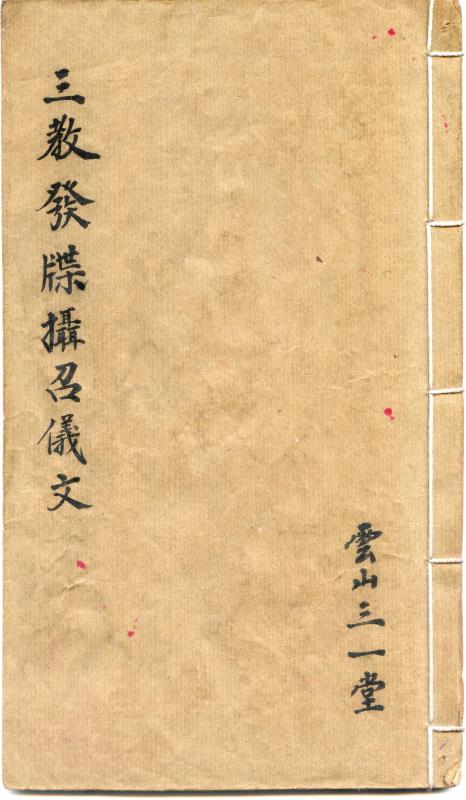 三教發牒攝召儀文
雲山三一堂